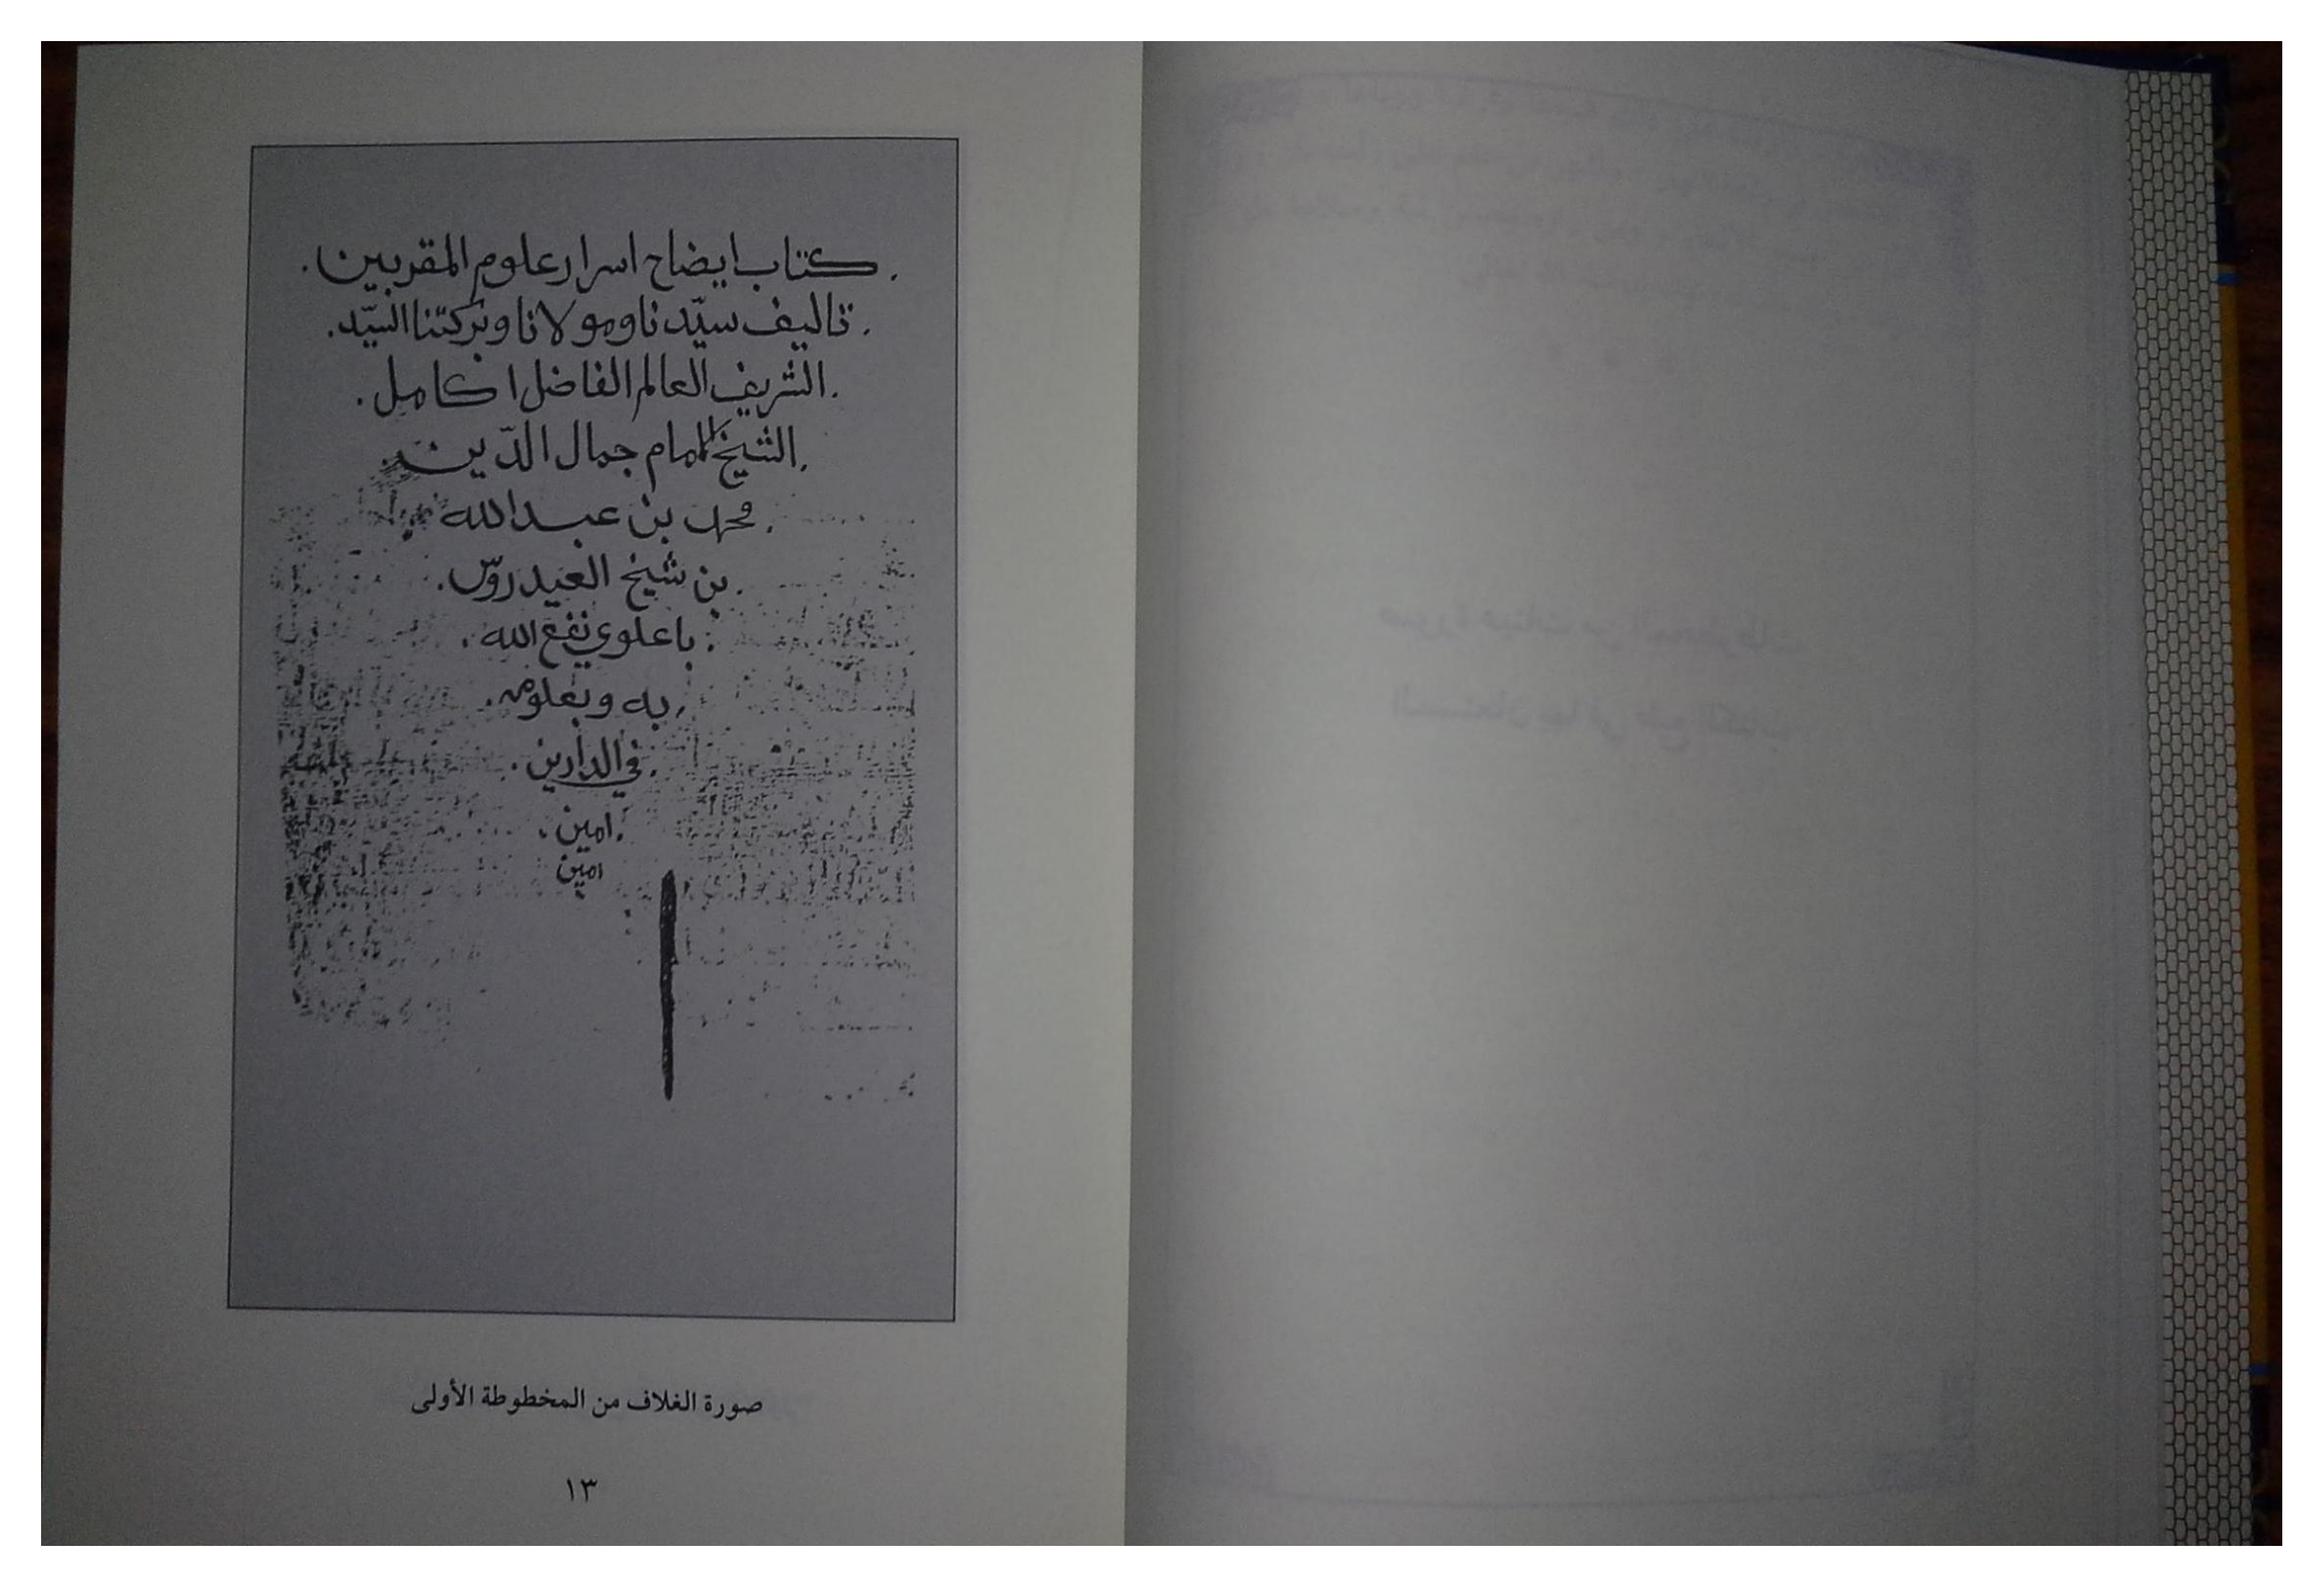 . كتاب ايضاح اسرار علوم المقربين .
. تاليف سيّدنا ومولانا وبركتنا السيّد .
. الشريف العالم الفاضل ا كامل .
. الشيخ الامام جمال الدّين .
. محمد بن عبد الله
. بن شيخ العيدروس .
. باعلوي نفع الله .
. به وبعلومه .
. في الدارين .
. امين .
امين
صورة الغلاف من المخطوطة الأولى
١٣